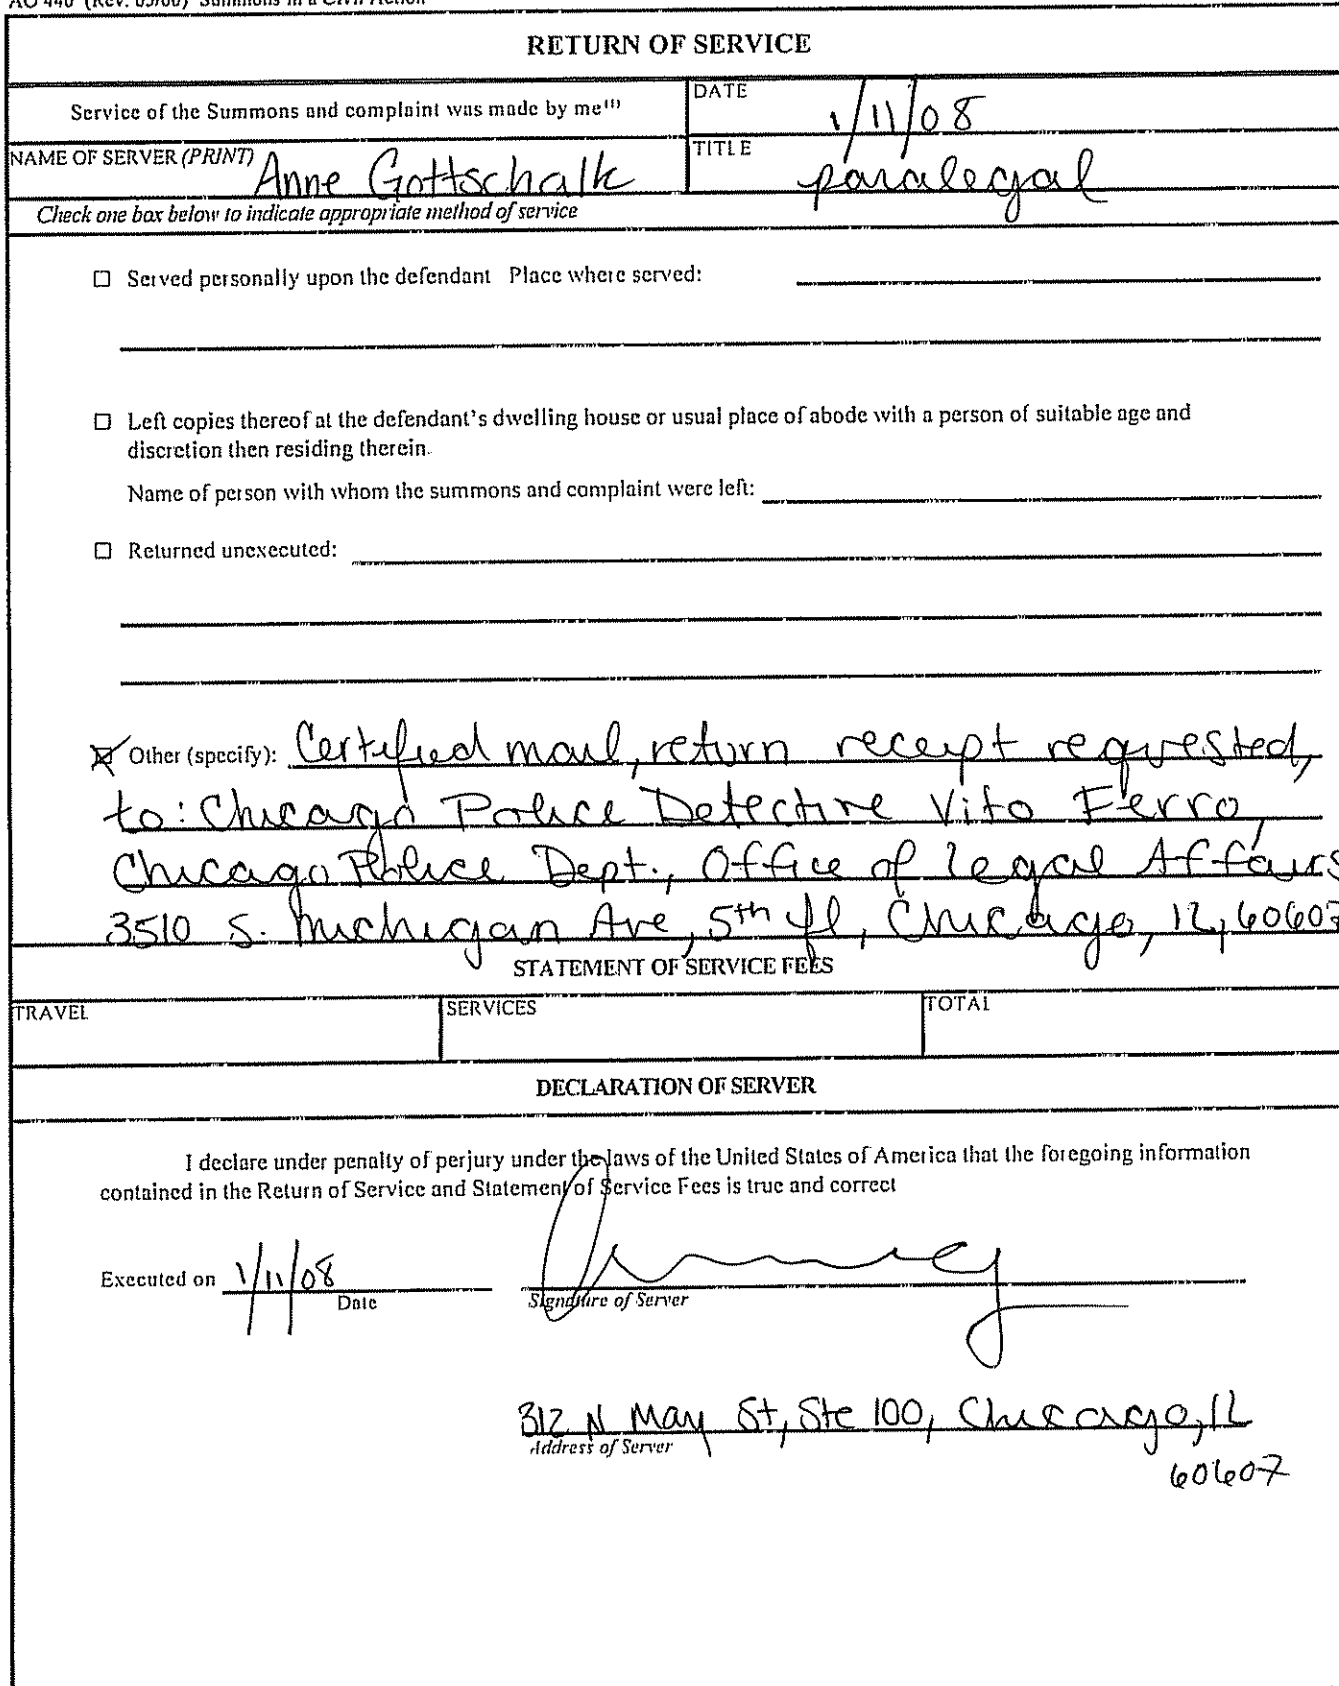 AO 440 (Rev. 05/00) Summons in a Civil Action
RETURN OF SERVICE
Service of the Summons and complaint was made by me(1)
DATE
1/11/08
NAME OF SERVER (PRINT) Anne Gottschalk
TITLE
paralegal
Check one box below to indicate appropriate method of service
☐ Served personally upon the defendant Place where served:
☐ Left copies thereof at the defendant's dwelling house or usual place of abode with a person of suitable age and
discretion then residing therein.
Name of person with whom the summons and complaint were left:
☐ Returned unexecuted:
☒ Other (specify): Certified mail, return receipt requested,
to: Chicago Police Detective Vito Ferro,
Chicago Police Dept., Office of Legal Affairs
3510 S. Michigan Ave, 5th fl, Chicago, IL, 60607
STATEMENT OF SERVICE FEES
TRAVEL
SERVICES
TOTAL
DECLARATION OF SERVER
I declare under penalty of perjury under the laws of the United States of America that the foregoing information
contained in the Return of Service and Statement of Service Fees is true and correct
Executed on 1/11/08
Date
Signature of Server
312 N May St, Ste 100, Chicago, IL
Address of Server
60607